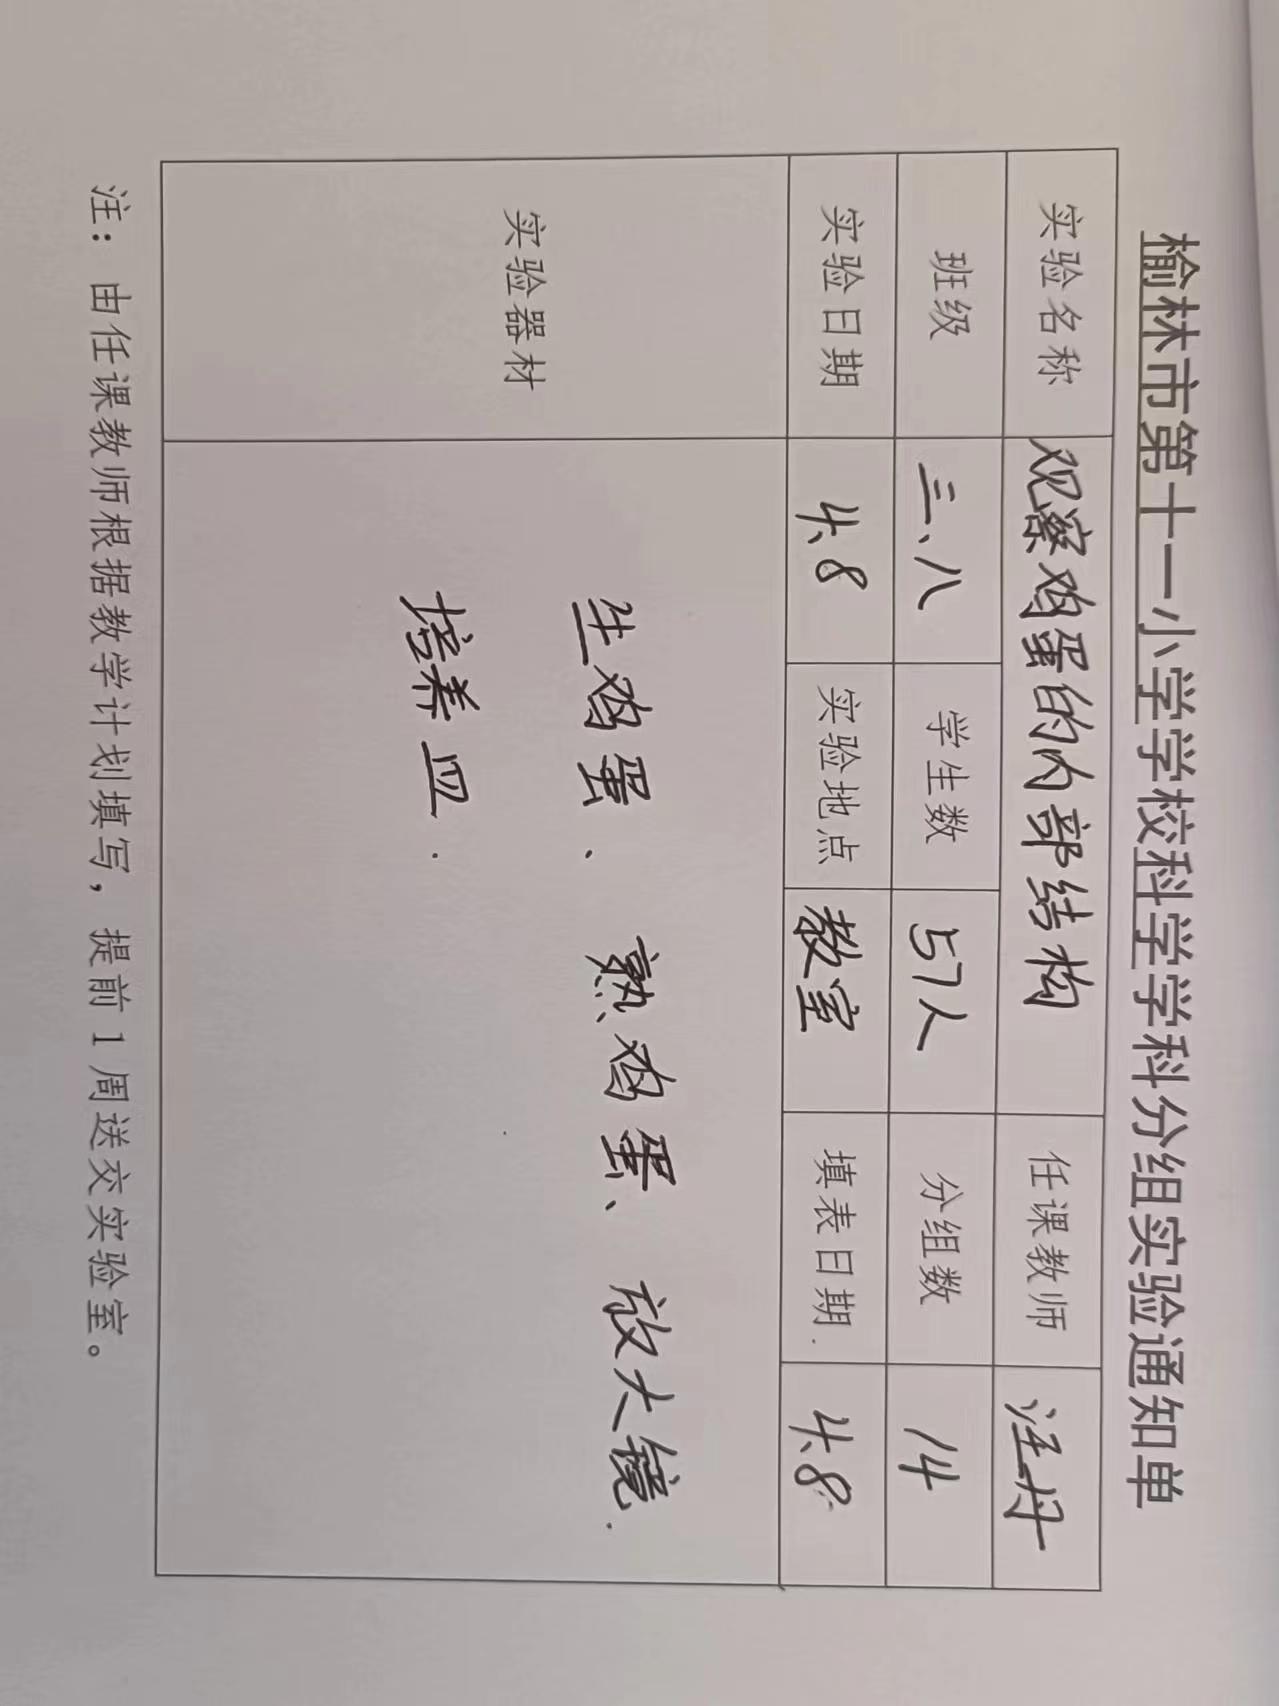 榆林市第十一小学学校科学学科分组实验通知单
实验名称 观察鸡蛋的内部结构 任课教师 汪丹
班级 三、八 学生数 57人 分组数 14
实验日期 4.8 实验地点 教室 填表日期 4.8
实验器材 生鸡蛋、熟鸡蛋、放大镜.
培养皿.
注：由任课教师根据教学计划填写，提前1周送交实验室。